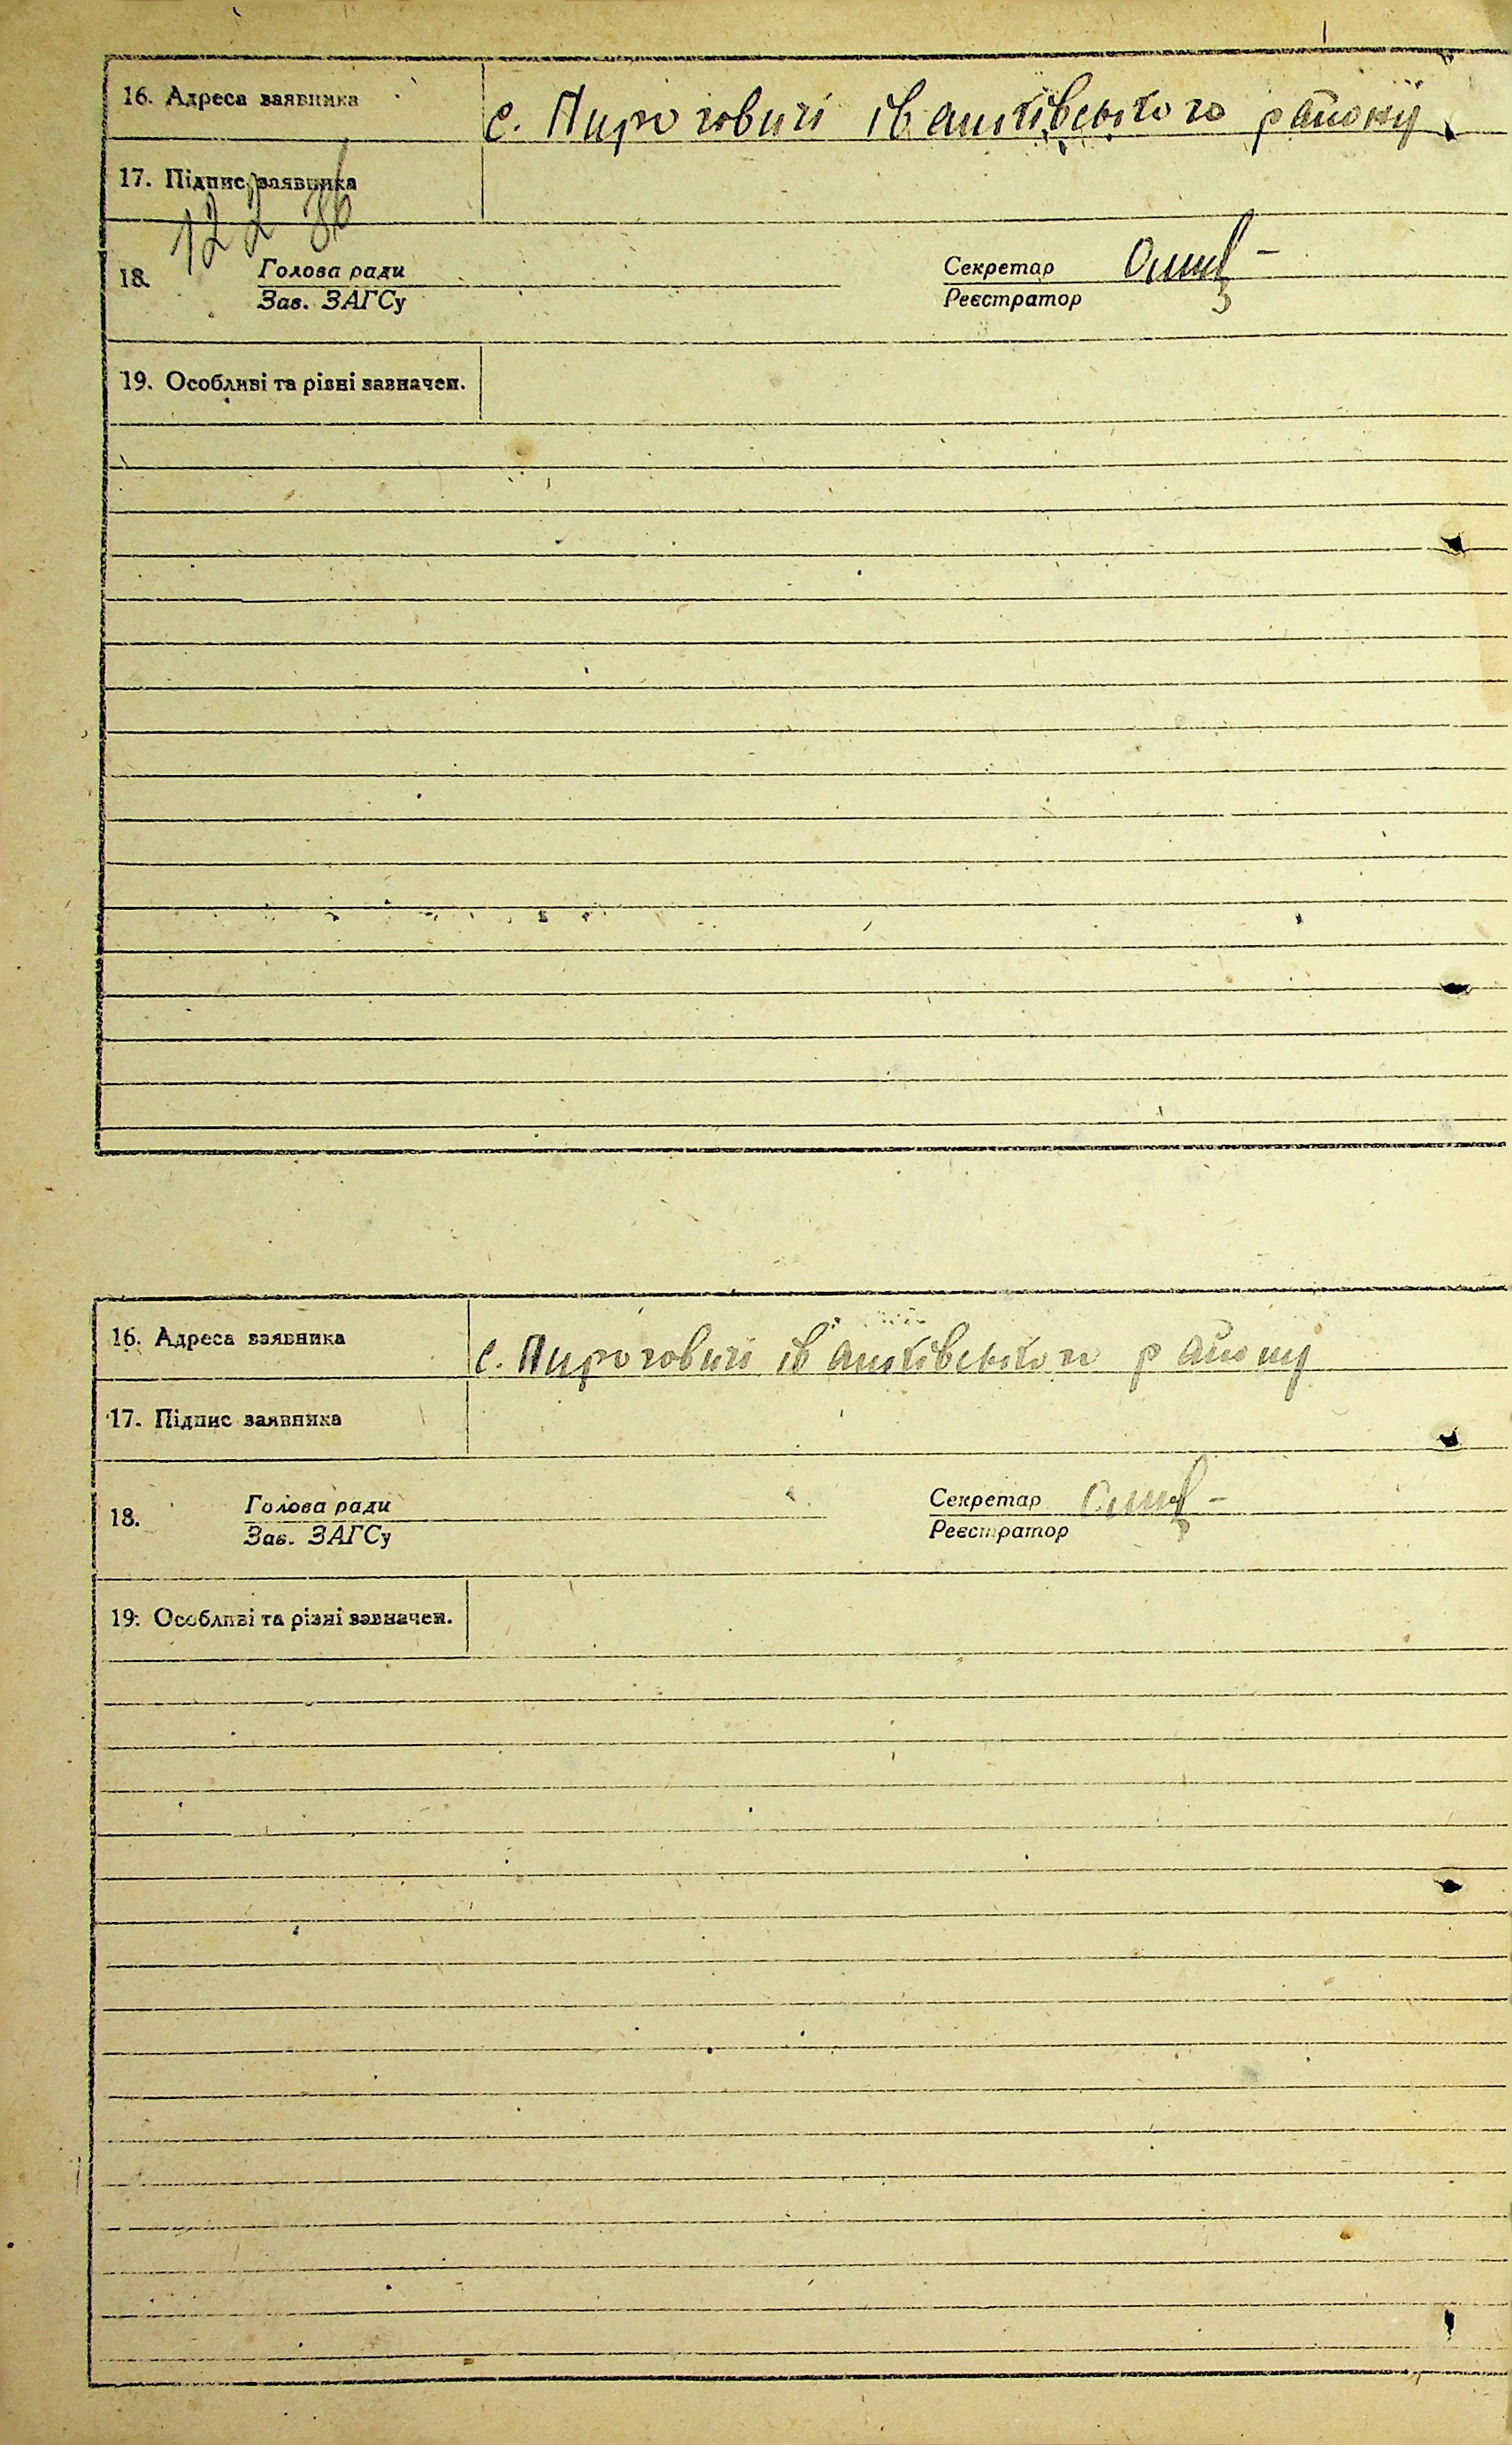 16. Адреса заявника с. Пироговичі іванківського району
17. Підпис заявника
12 2 36
18. Голова ради Секретар
Зав. ЗАГСу Реєстратор
19. Особливі та різні зазначен.
16. Адреса заявника с. Пироговичі іванківського району
17. Підпис заявника
18. Голова ради Секретар
Зав. ЗАГСу Реєстратор
19. Особливі та різні зазначен.